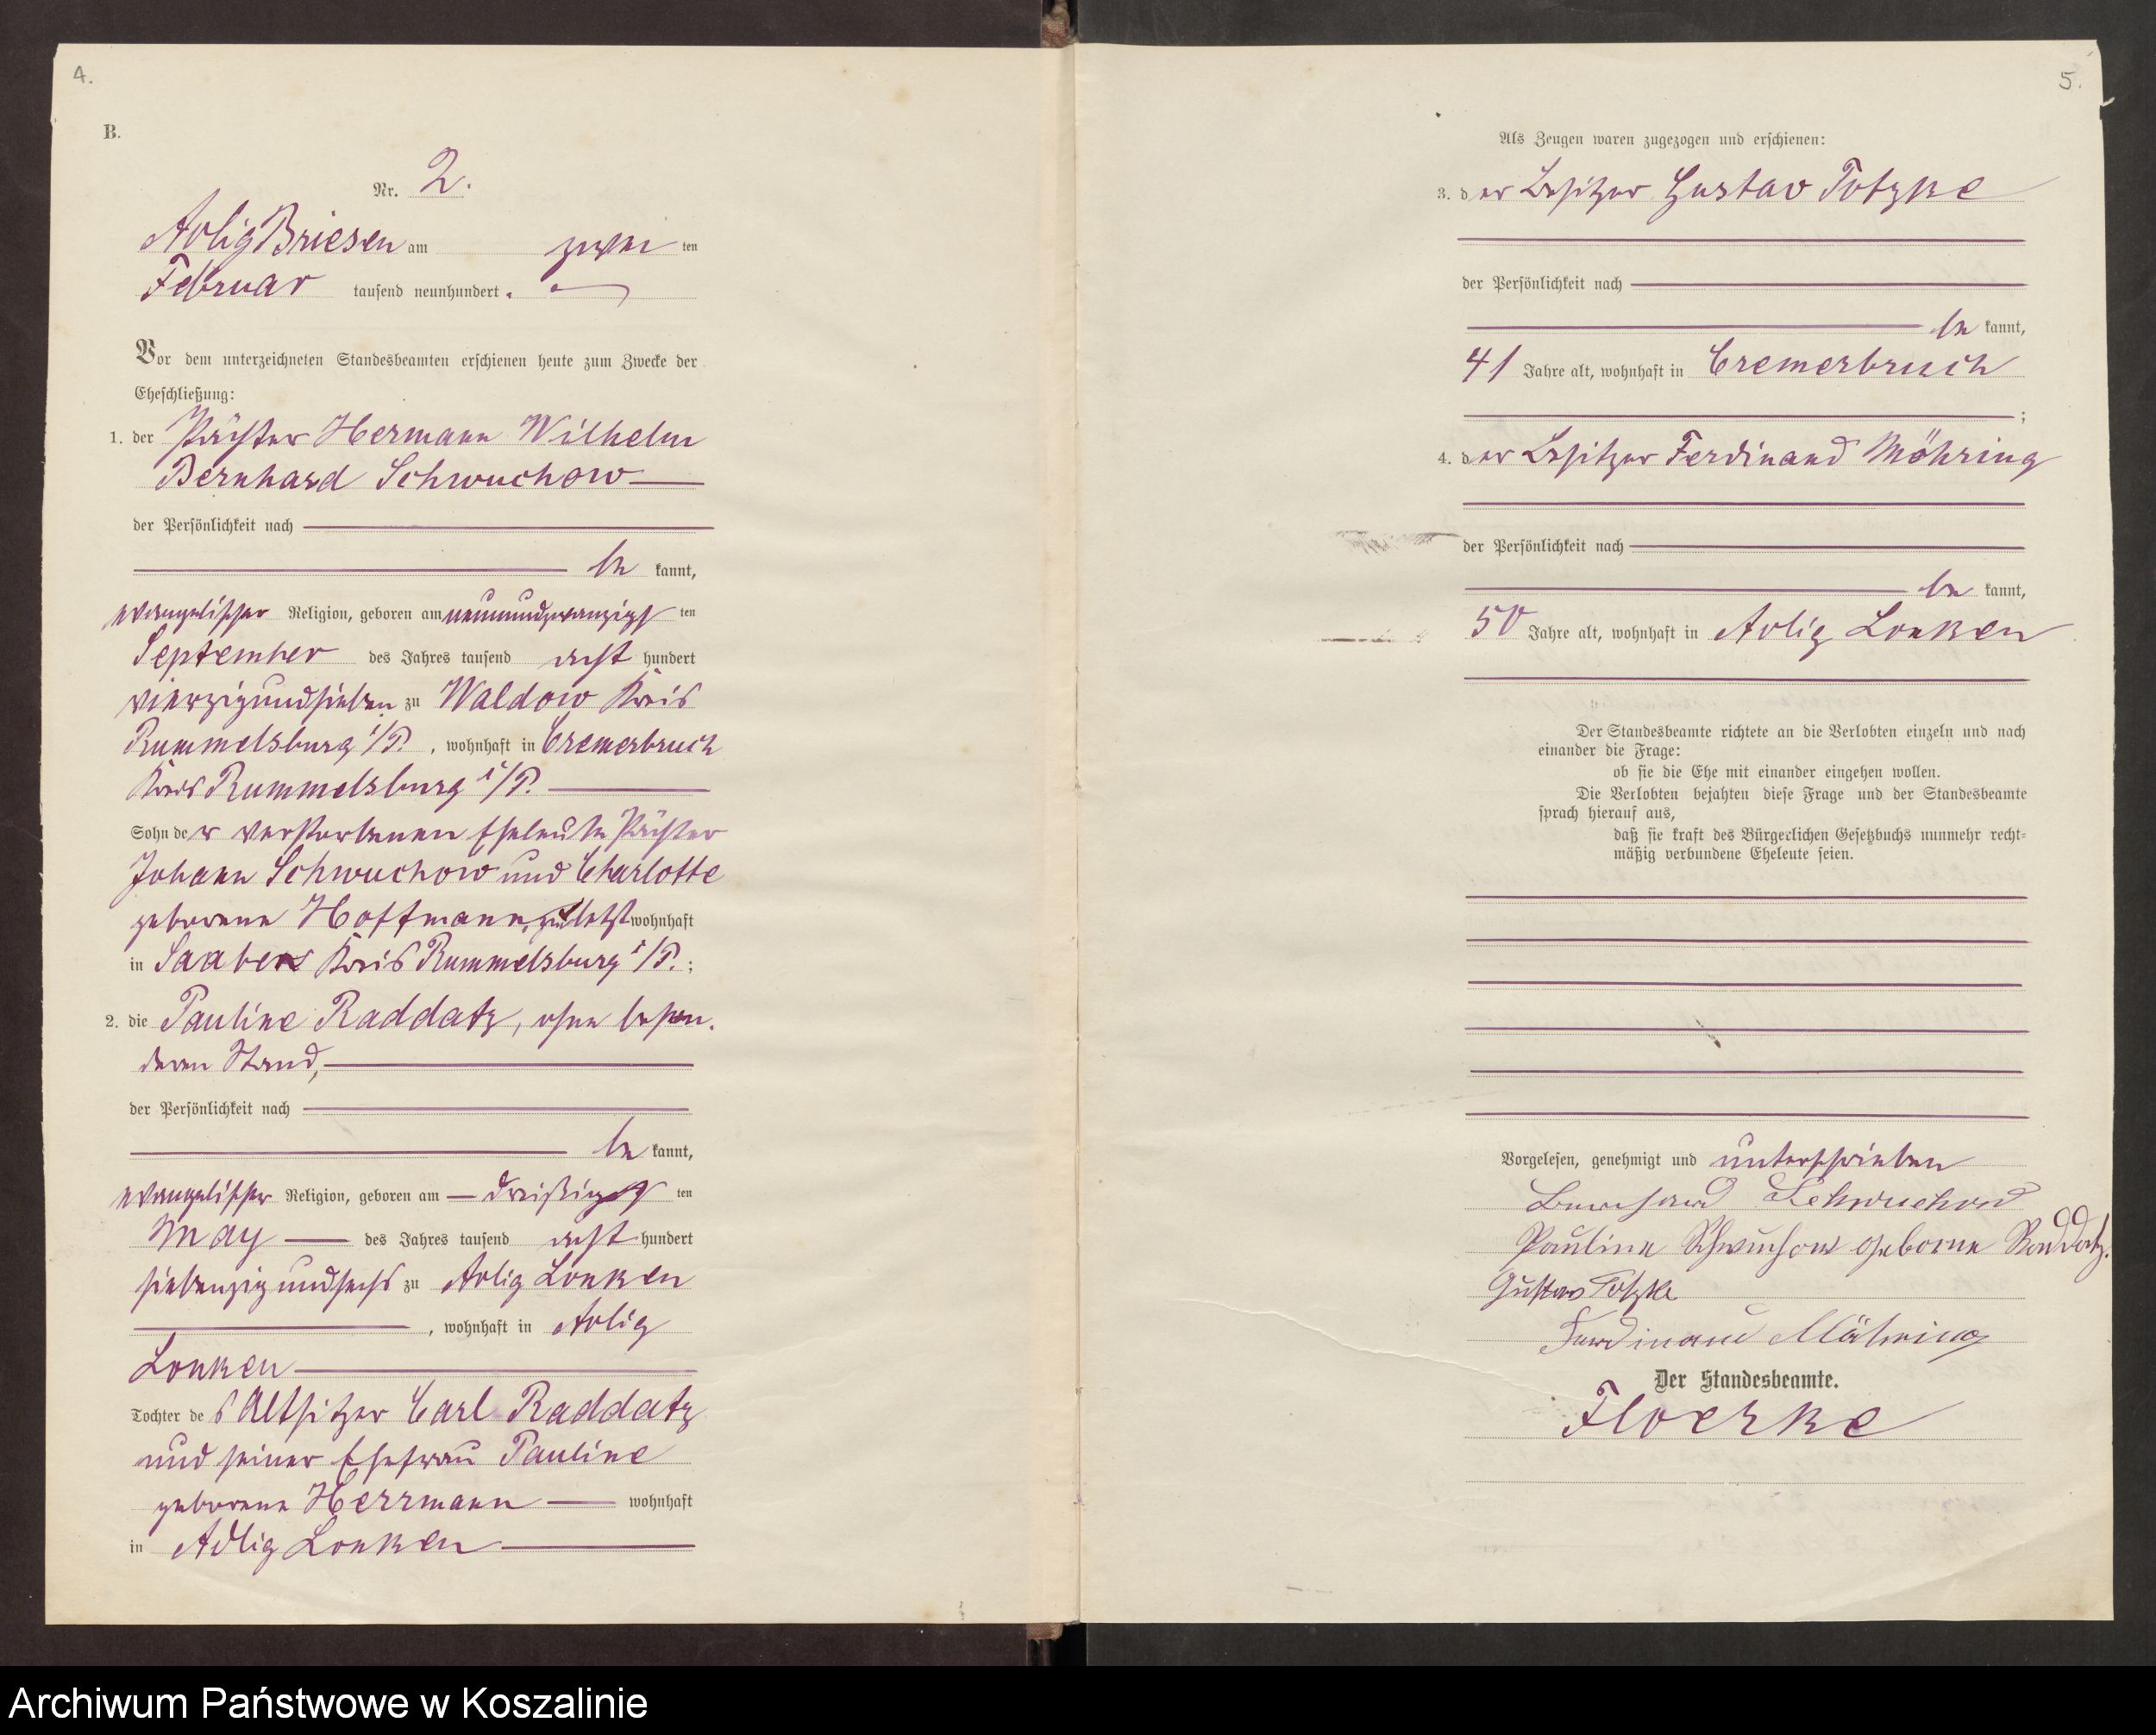 4.
B.
Nr. 2.
Adlig Briesen am zwei ten
Februar tausend neunhundert.
Vor dem unterzeichneten Standesbeamten erschienen heute zum Zwecke der
Eheschließung:
1. der Pächter Hermann Wilhelm
Bernhard Schwuchow
der Persönlichkeit nach
be kannt,
evangelischer Religion, geboren am neunundzwanzigst ten
September des Jahres tausend acht hundert
vierzigundsieben zu Waldow Kreis
Rummelsburg i/P. , wohnhaft in Cremerbruch
Kreis Rummelsburg i/P.
Sohn de r verstorbenen Eheleute Pächter
Johann Schwuchow und Charlotte
geborene Hoffmann, zuletzt wohnhaft
in Saaben Kreis Rummelsburg i/P. ;
2. die Pauline Raddatz, ohne beson.
deren Stand,
der Persönlichkeit nach
be kannt,
evangelischer Religion, geboren am dreißigst ten
May des Jahres tausend acht hundert
siebenzigundsechs zu Adlig Lonken
, wohnhaft in Adlig
Lonken
Tochter de s Altsitzer Carl Raddatz
und seiner Ehefrau Pauline
geborene Herrmann wohnhaft
in Adlig Lonken
5.
Als Zeugen waren zugezogen und erschienen:
3. d er Besitzer Gustav Totzke
der Persönlichkeit nach
be kannt,
41 Jahre alt, wohnhaft in Cremerbruch
;
4. d er Besitzer Ferdinand Möhring
der Persönlichkeit nach
be kannt,
50 Jahre alt, wohnhaft in Adlig Lonken
Der Standesbeamte richtete an die Verlobten einzeln und nach
einander die Frage:
ob sie die Ehe mit einander eingehen wollen.
Die Verlobten bejahten diese Frage und der Standesbeamte
sprach hierauf aus,
daß sie kraft des Bürgerlichen Gesetzbuchs nunmehr recht-
mäßig verbundene Eheleute seien.
Vorgelesen, genehmigt und unterschrieben
Bernhard Schwuchow
Pauline Schwuchow geborne Raddatz.
Gustav Totzke
Ferdinand Möhring
Der Standesbeamte.
Floerke
Archiwum Państwowe w Koszalinie